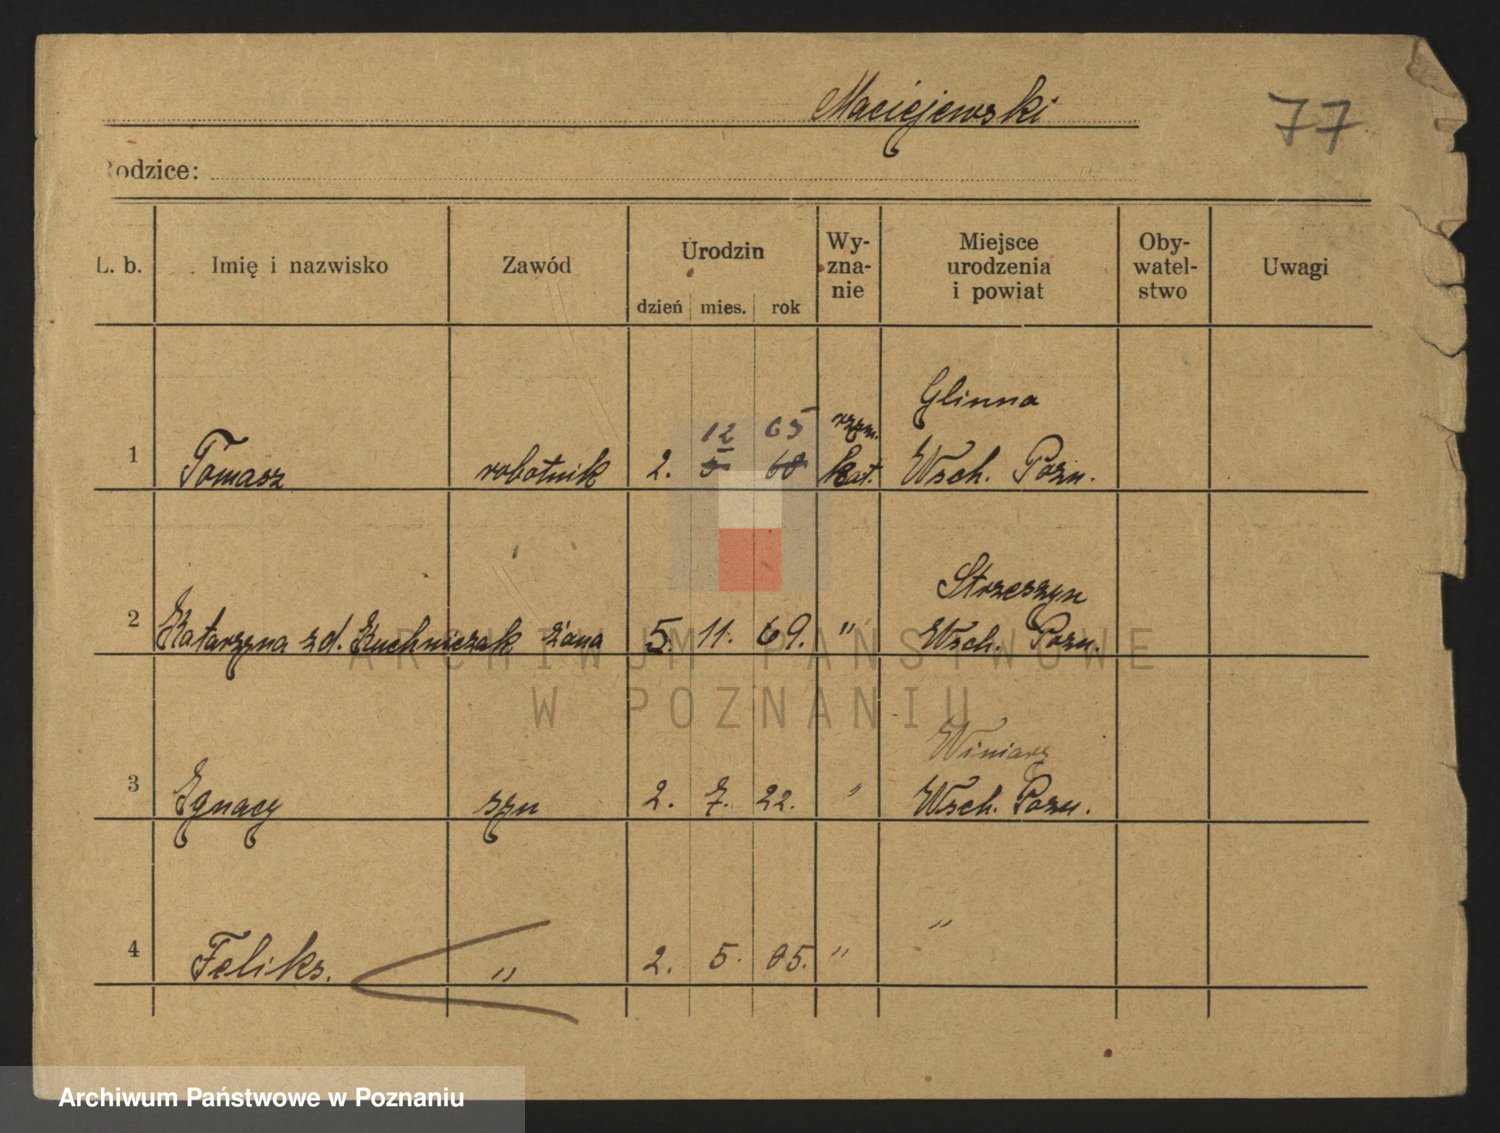 Maciejewski
77
Rodzice:
L. b. Imię i nazwisko Zawód Urodzin dzień mies. rok Wy-zna-nie Miejsce urodzenia i powiat Oby-watel-stwo Uwagi
12 65 rzym. Glinna
1 Tomasz robotnik 2. 5 68 kat. Wsch. Pozn.
Strzeszyn
2 Katarzyna z d. Kuchniczak żona 5. 11. 69. " Wsch. Pozn.
ARCHIWUM PAŃSTWOWE
W POZNANIU
Winiary
3 Ignacy syn 2. 7. 22. " Wsch. Pozn.
4 Feliks. " 2. 5. 05. " "
Archiwum Państwowe w Poznaniu